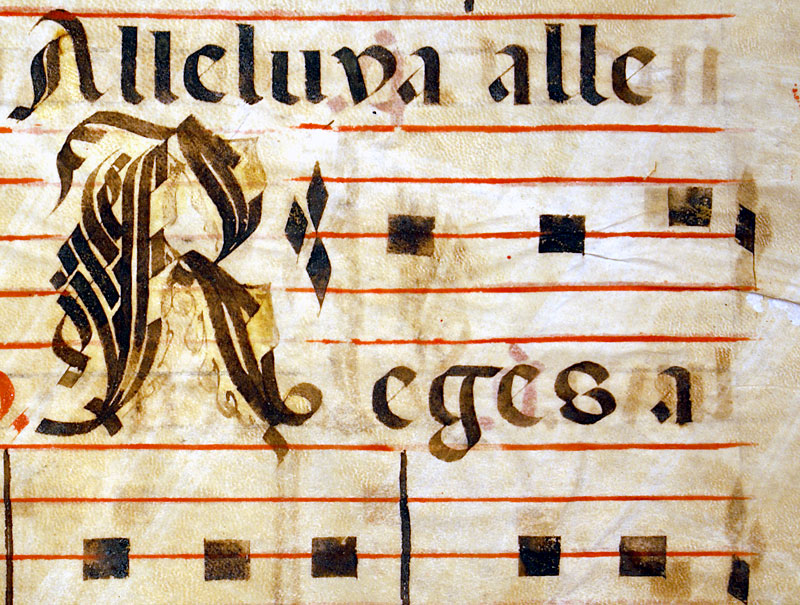 Alleluya alle
Reges a